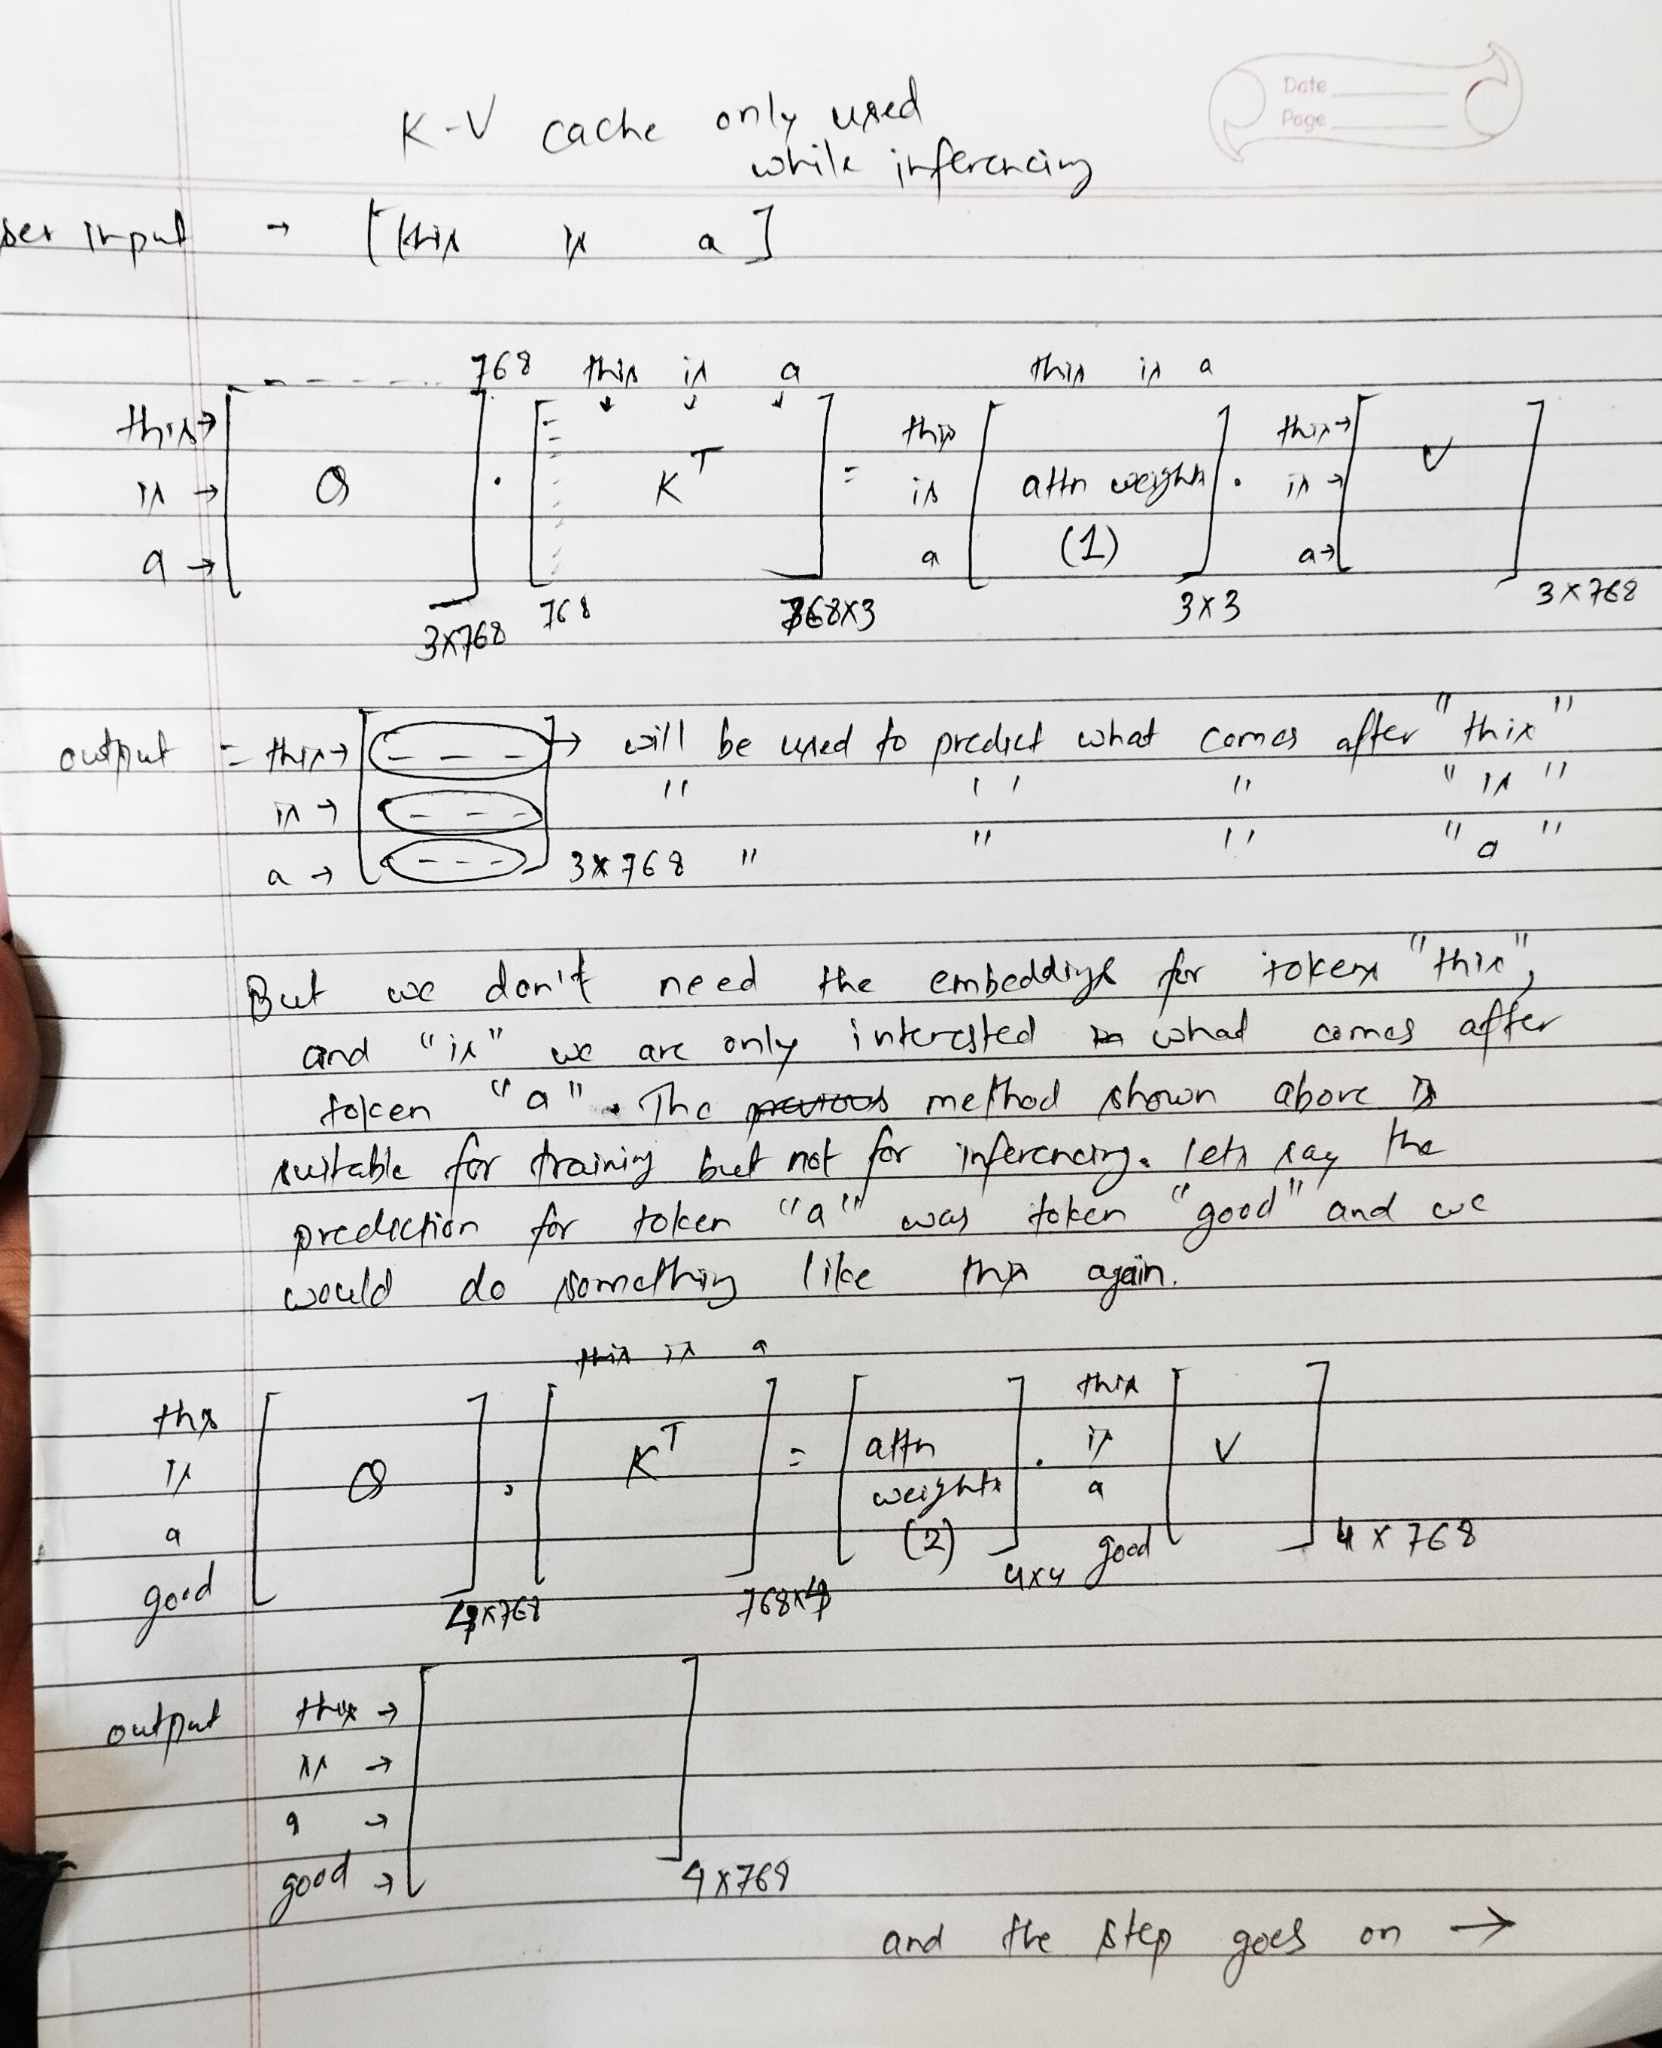 Date
Page
K-V cache only used
while inferencing
ser input → [this is a]
768 this is a this is a
this→ this this→
is → Q . K^T = is attn weights . is → V
a → a (1) a→
3x768 768 768x3 3x3 3x768
output = this→ --- → will be used to predict what comes after "this"
is → --- " " " " "is"
a → --- 3x768 " " " "a"
But we don't need the embeddings for tokens "this",
and "is" we are only interested in what comes after
token "a". The method shown above is
suitable for training but not for inferencing. lets say the
prediction for token "a" was token "good" and we
would do something like this again.
this is a
this this
is Q . K^T = attn weights . is V
a (2) a
good good
4x768 768x4 4x4 4x768
output this →
is →
a →
good →
4x768
and the step goes on →